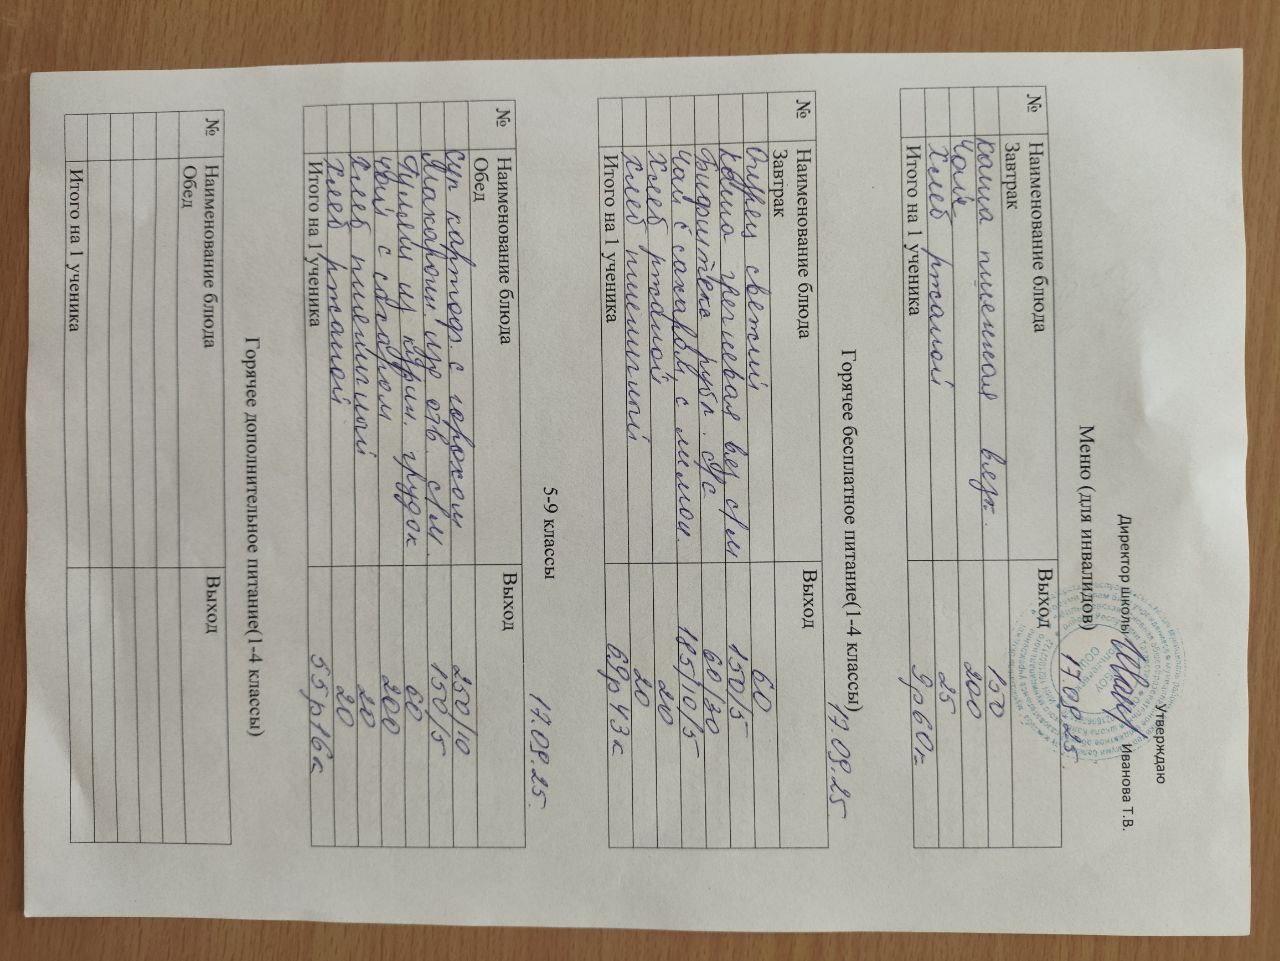 Утверждаю
Директор школы Иванова Т.В.
Меню (для инвалидов) 17.09.25
№ Наименование блюда Выход
Завтрак
Каша пшенная вязк. 150
Чай 200
Хлеб ржаной 25
Итого на 1 ученика 9р60к
Горячее бесплатное питание(1-4 классы) 17.09.25
№ Наименование блюда Выход
Завтрак
Огурец свежий 60
Каша гречневая вяз с/м 150/5
Бифштекс рубл. с/с 60/30
Чай с сахаром, с лимон 185/10/5
Хлеб ржаной 20
Хлеб пшеничный 20
Итого на 1 ученика 69р43к
5-9 классы 17.09.25
№ Наименование блюда Выход
Обед
Суп картоф. с горохом 250/10
Макарон. изд отв. с/м 150/5
Гуляш из курин. грудок 60
Чай с сахаром 200
Хлеб пшеничный 20
Хлеб ржаной 20
Итого на 1 ученика 55р16к
Горячее дополнительное питание(1-4 классы)
№ Наименование блюда Выход
Обед
Итого на 1 ученика